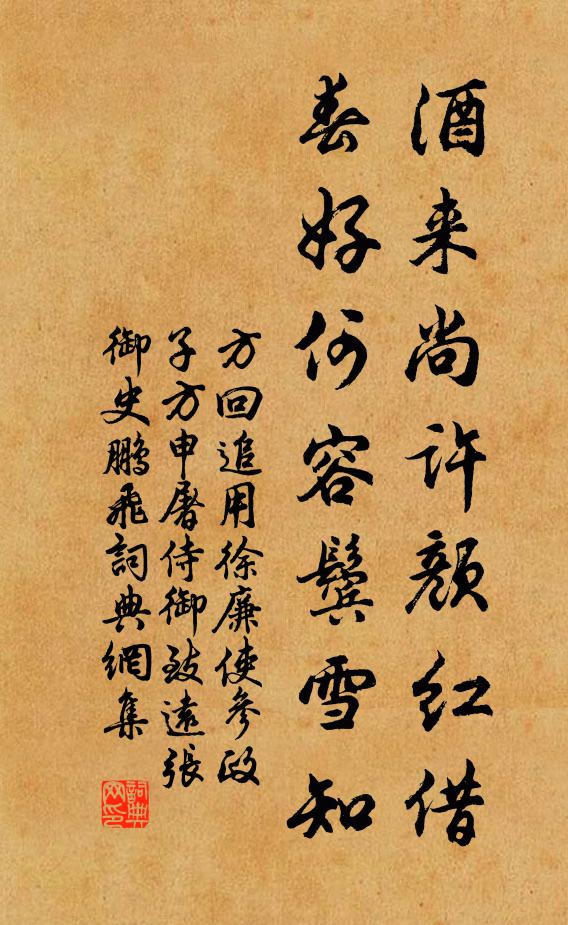 酒来尚许颜红借
春好何容鬓雪知
方回追用徐廉使参政
子方申屠侍御致遠張
御史鵬飛詞典網集
詞典
网印